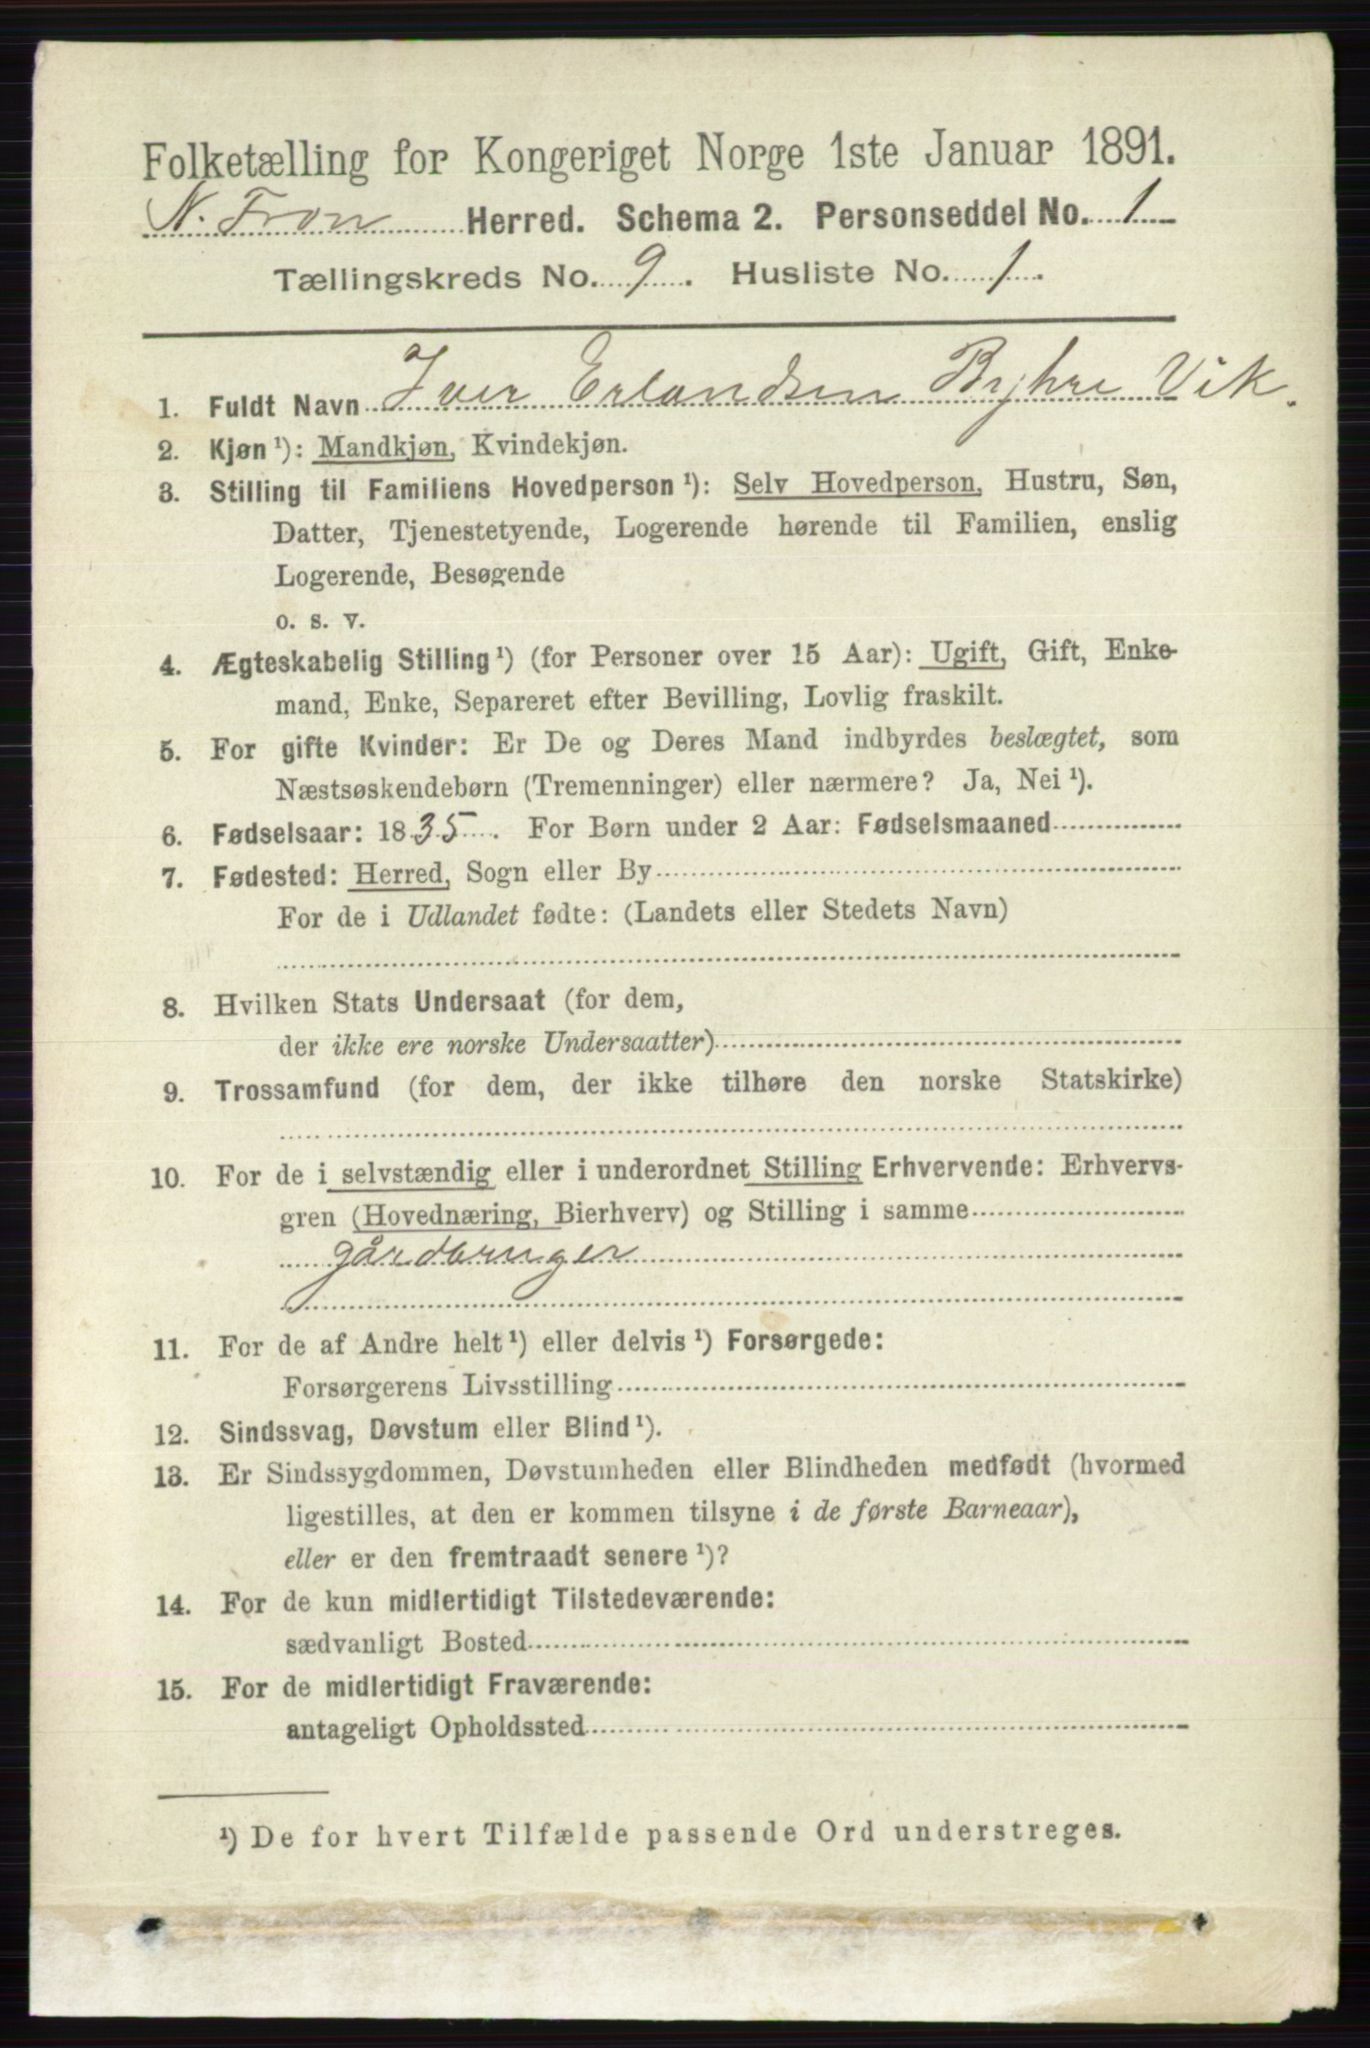 Folketælling for Kongeriget Norge 1ste Januar 1891.
N. Fron Herred. Schema 2. Personseddel No. 1
Tællingskreds No. 9. Husliste No. 1.
1. Fuldt Navn Iver Erlandsen Byhre Vik.
2. Kjøn ¹): Mandkjøn, Kvindekjøn.
3. Stilling til Familiens Hovedperson ¹): Selv Hovedperson, Hustru, Søn,
Datter, Tjenestetyende, Logerende hørende til Familien, enslig
Logerende, Besøgende
o. s. v.
4. Ægteskabelig Stilling ¹) (for Personer over 15 Aar): Ugift, Gift, Enke-
mand, Enke, Separeret efter Bevilling, Lovlig fraskilt.
5. For gifte Kvinder: Er De og Deres Mand indbyrdes beslægtet, som
Næstsøskendebørn (Tremenninger) eller nærmere? Ja, Nei ¹).
6. Fødselsaar: 1835. For Børn under 2 Aar: Fødselsmaaned
7. Fødested: Herred, Sogn eller By
For de i Udlandet fødte: (Landets eller Stedets Navn)
8. Hvilken Stats Undersaat (for dem,
der ikke ere norske Undersaatter)
9. Trossamfund (for dem, der ikke tilhøre den norske Statskirke)
10. For de i selvstændig eller i underordnet Stilling Erhvervende: Erhvervs-
gren (Hovednæring, Bierhverv) og Stilling i samme
gårdbruger
11. For de af Andre helt ¹) eller delvis ¹) Forsørgede:
Forsørgerens Livsstilling
12. Sindssvag, Døvstum eller Blind ¹).
13. Er Sindssygdommen, Døvstumheden eller Blindheden medfødt (hvormed
ligestilles, at den er kommen tilsyne i de første Barneaar),
eller er den fremtraadt senere ¹)?
14. For de kun midlertidigt Tilstedeværende:
sædvanligt Bosted
15. For de midlertidigt Fraværende:
antageligt Opholdssted
¹) De for hvert Tilfælde passende Ord understreges.